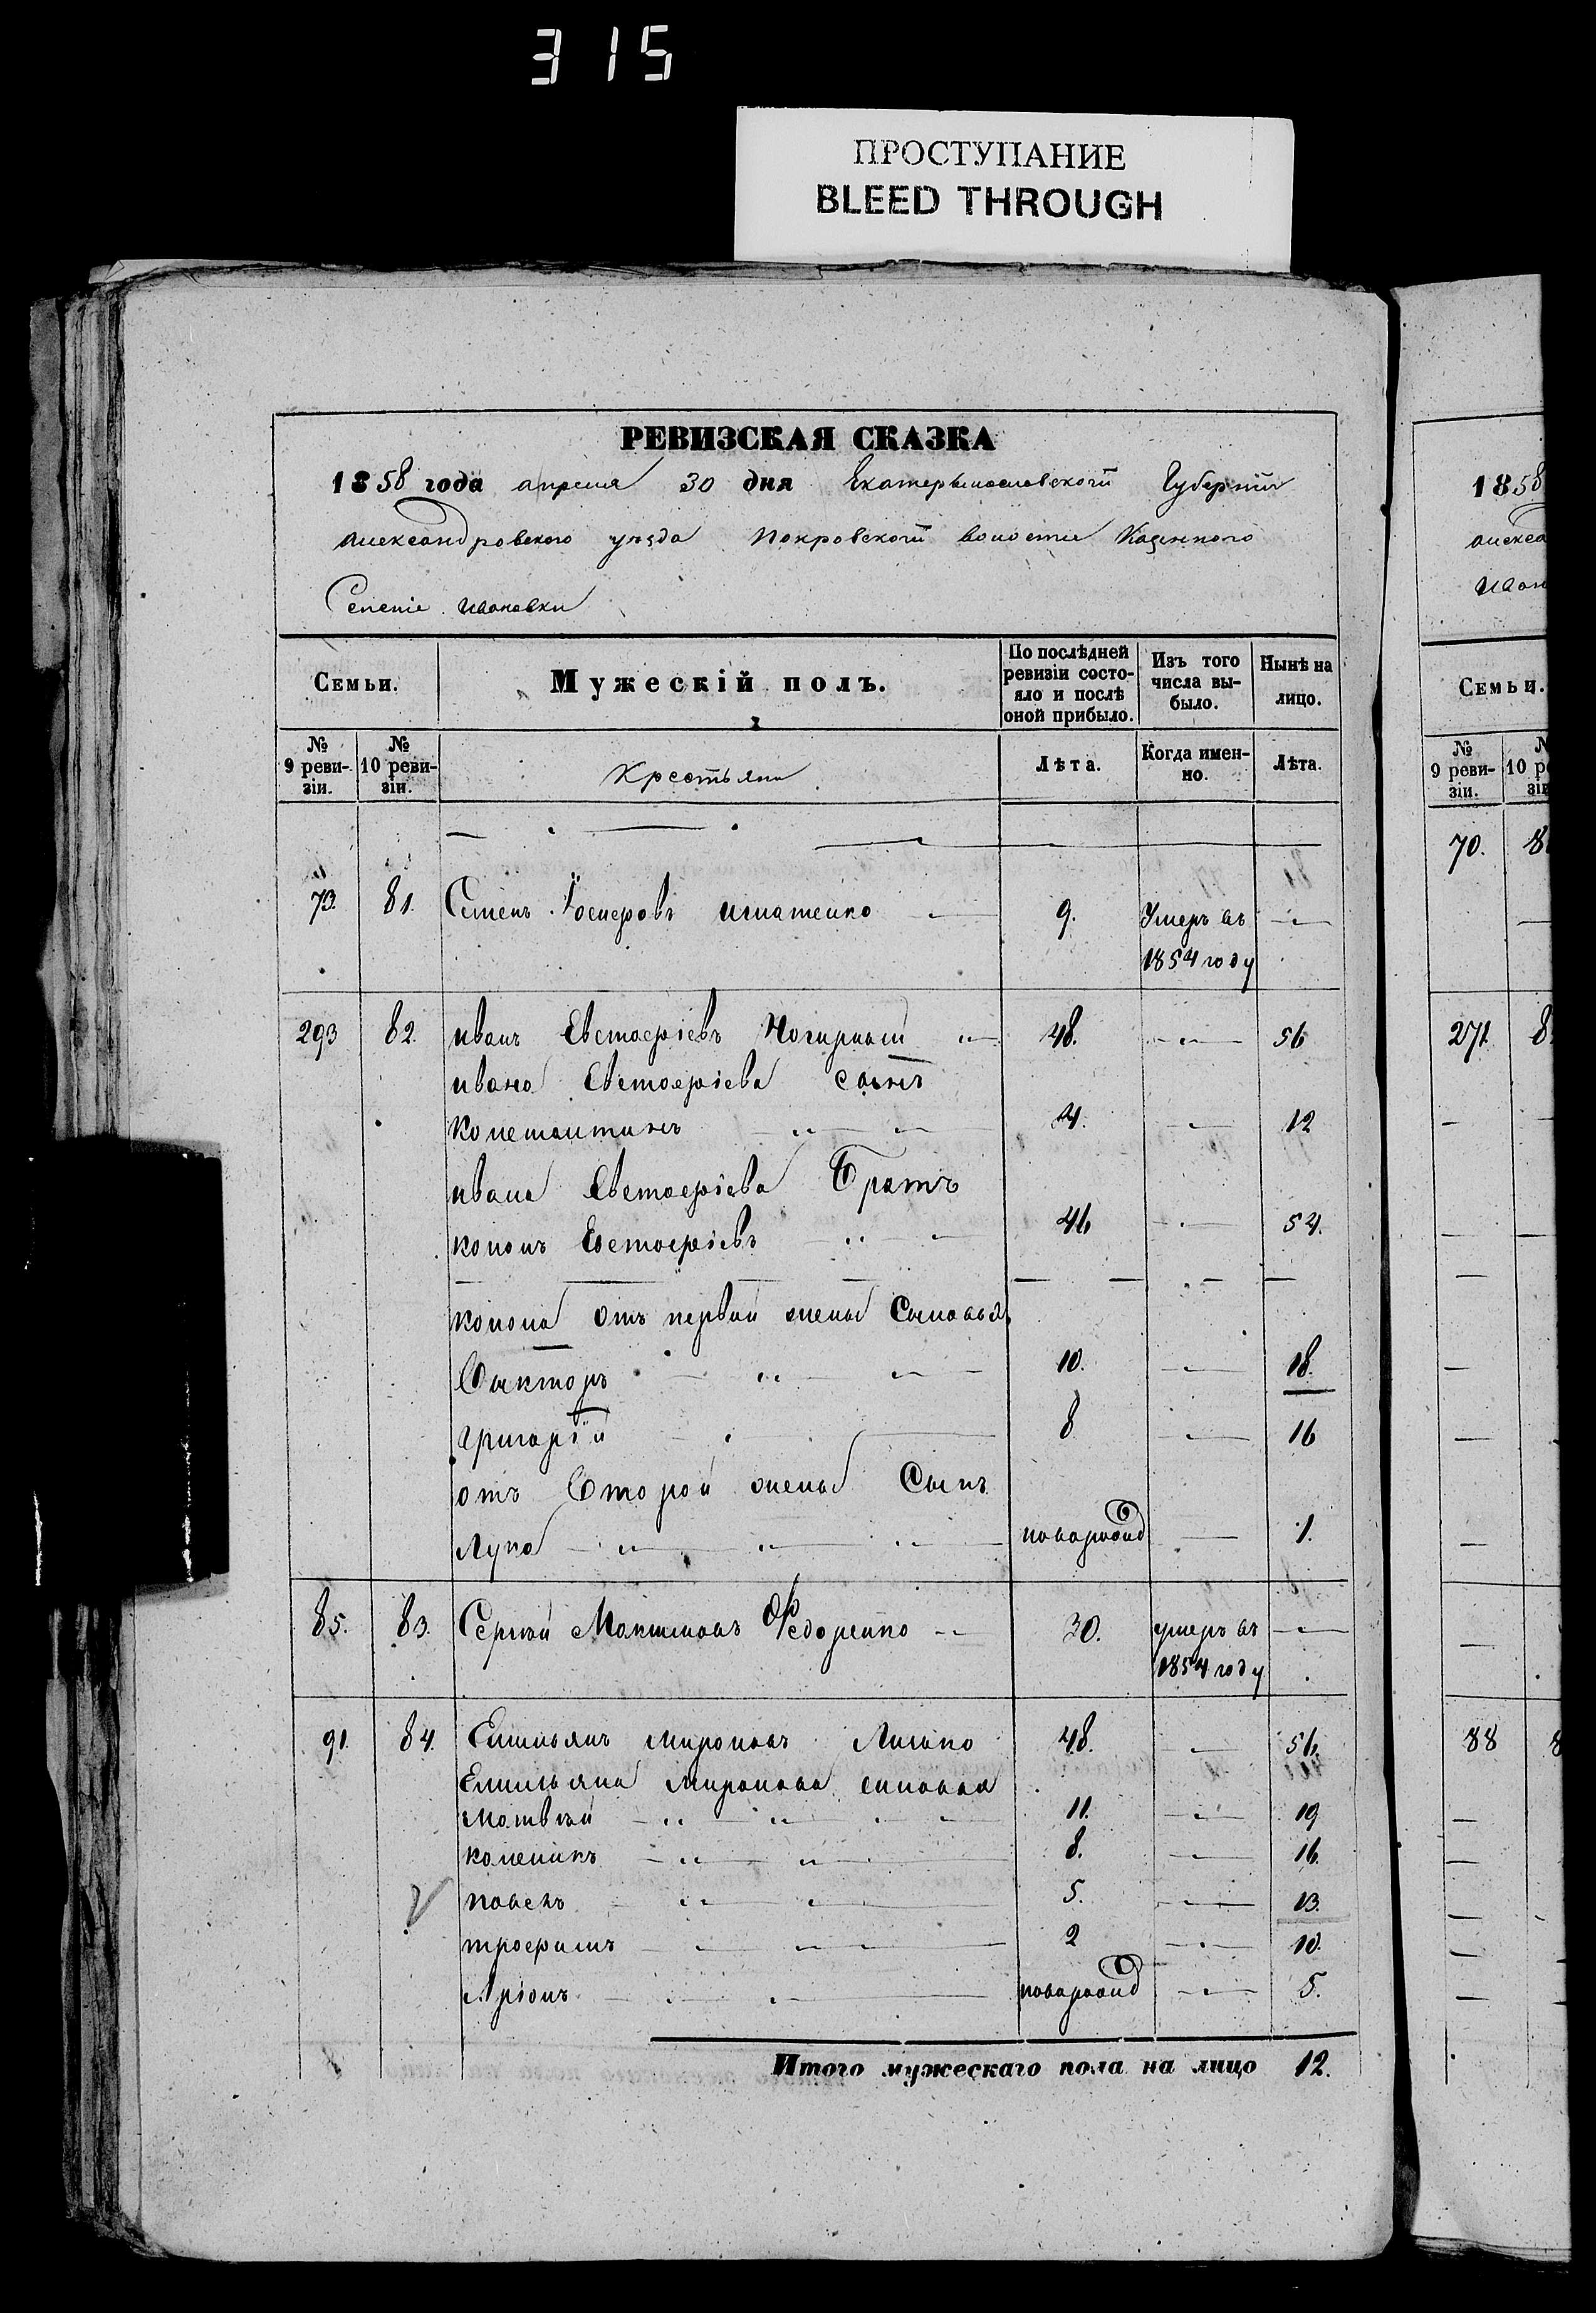 315
ПРОСТУПАНИЕ
BLEED THROUGH
РЕВИЗСКАЯ СКАЗКА
1858 года апреля 30 дня Екатеринославской Губернии
александровского уѣзда Покровской волости Казенного
Селенiе Ивановки
Семьи.
Мужескій полъ.
По послѣдней ревизіи состояло и послѣ оной прибыло.
Изъ того числа выбыло.
Нынѣ на лицо.
№ 9 ревизіи.
№ 10 ревизіи.
Крестьяне
Лѣта.
Когда именно.
Лѣта.
73. 81. Семенъ игнатенко 9. Умеръ въ
1854 году
293 82. иванъ Евстафіевъ 48. 56
ивана Евстафіева сынъ
константинъ 4. 12
ивана Евстафіева Братъ
кононъ Евстафіевъ 46 54.
конона отъ первой жены Сыновья
Викторъ 10. 18.
григорій 8 16
отъ Второй жены Сынъ
Лука новорожд 1.
85. 83. Сергѣй Максимовъ Федоренко 30. умеръ въ
1854 году
91. 84. Емильянъ мироновъ 48. 56.
Емильяна миронова синовья
Матвѣй 11. 19
8. 16.
павелъ 5. 13.
трофимъ 2 10.
новорожд 5.
Итого мужескаго пола на лицо 12.
1858
Семьи.
№ 9 ревизіи.
70.
271.
88